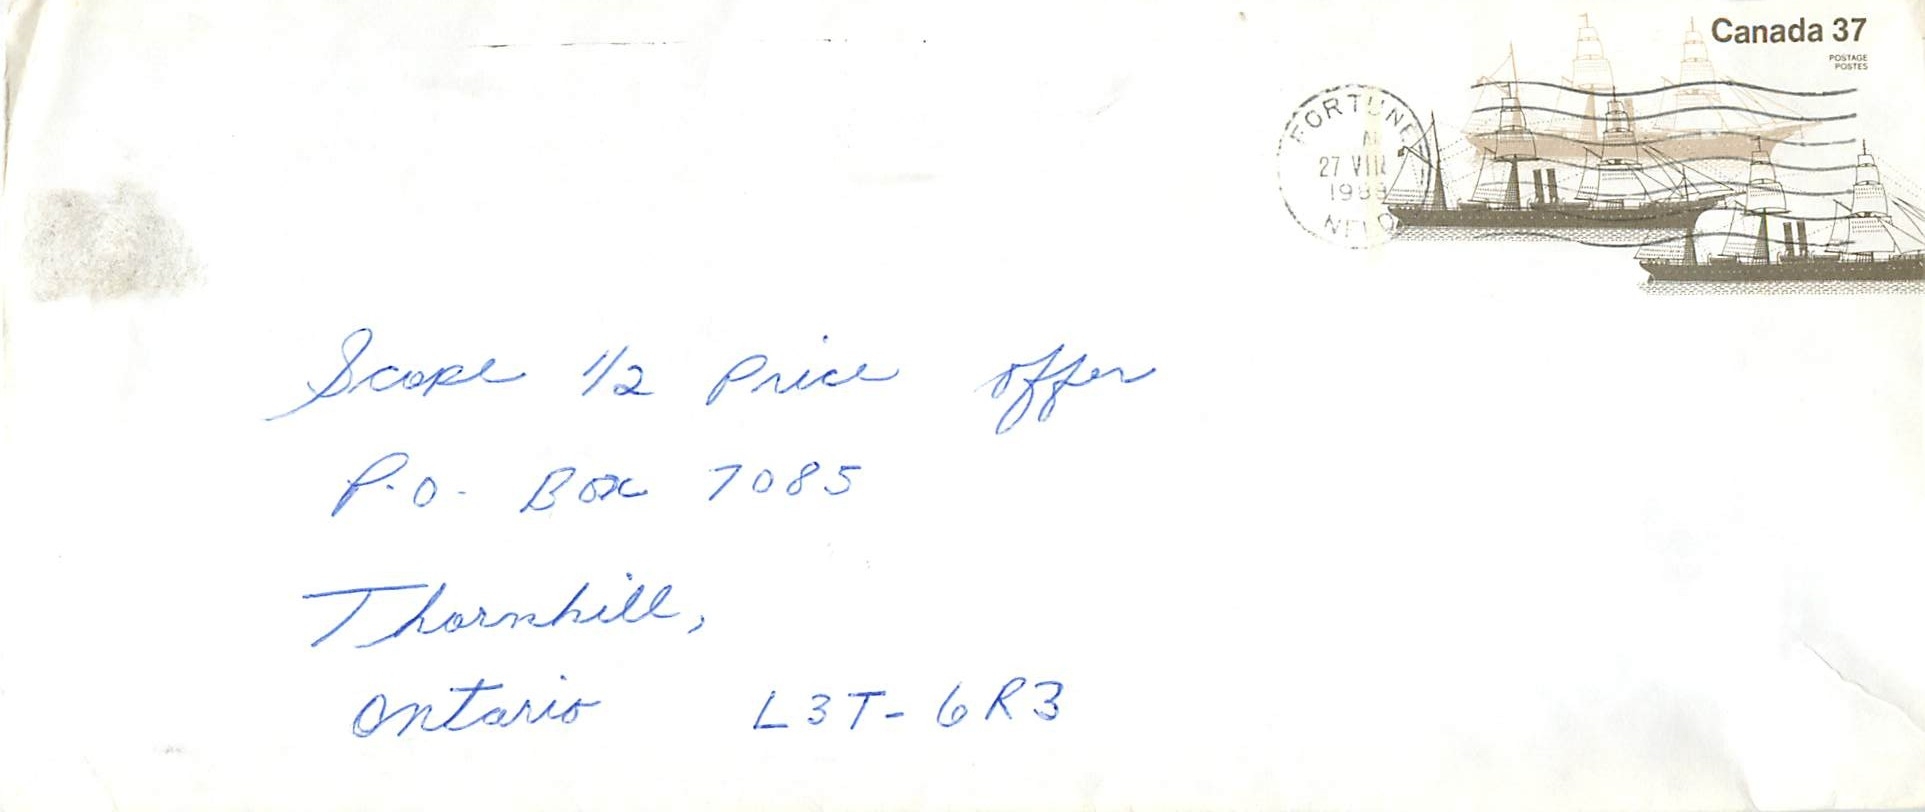 Canada 37
POSTAGE
POSTES
FORTUNE
27 VIII
1989
NFLD
Scope 1/2 Price offer
P.O. Box 7085
Thornhill,
Ontario L3T-6R3